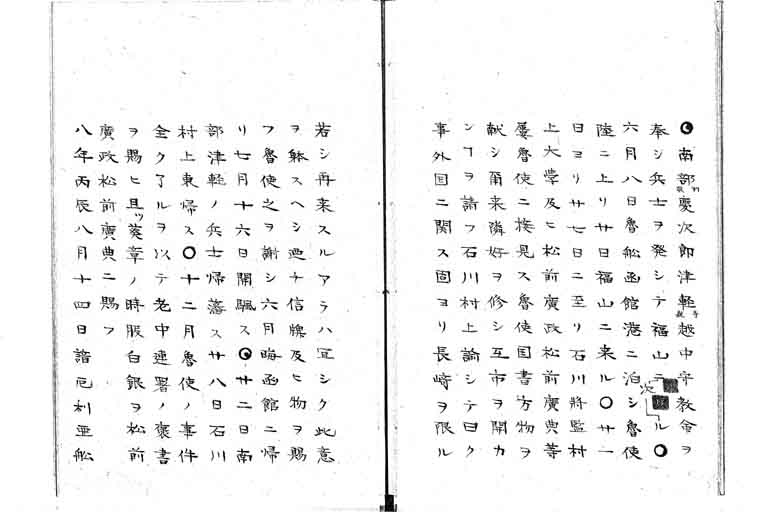 南部慶次郎津軽越中守教命ヲ
奉シ兵士ヲ発シテ福山ニ次ル〇
六月八日魯舩函館港ニ泊シ魯使
陸ニ上リ廿日福山ニ来ル〇廿一
日ヨリ廿七日ニ至リ石川將監村
上大学及ヒ松前廣政松前廣典等
屡魯使ニ接見ス魯使国書方物ヲ
献シ爾来隣好ヲ修シ互市ヲ開カ
ンヿヲ請フ石川村上諭シテ曰ク
事外国ニ関ス固ヨリ長崎ヲ限ル
若シ再来スルアラハ冝シク此意
ヲ躰スヘシ廼チ信牌及ヒ物ヲ賜
フ魯使之ヲ謝シ六月晦函館ニ帰
リ七月十六日開颿ス 廿二日南
部津軽ノ兵士帰藩ス廿八日石川
村上東帰ス〇十二月魯使ノ事件
全ク了ルヲ以テ老中連署ノ褒書
ヲ賜ヒ且ツ葵章ノ時服白銀ヲ松前
廣政松前廣典ニ賜フ
八年丙辰八月十四日諳厄利亜舩